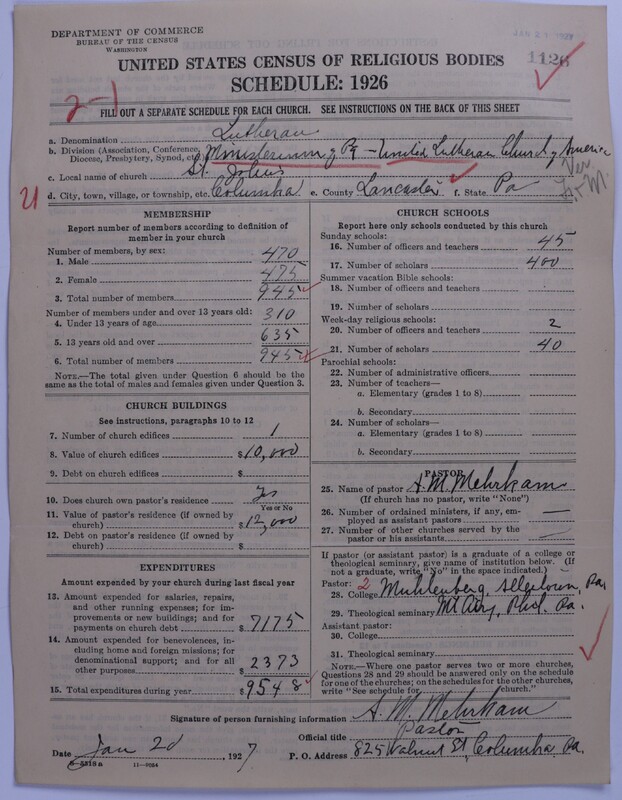 DEPARTMENT OF COMMERCE
BUREAU OF THE CENSUS
WASHINGTON
1126
UNITED STATES CENSUS OF RELIGIOUS BODIES
SCHEDULE: 1926
2-1
FILL OUT A SEPARATE SCHEDULE FOR EACH CHURCH. SEE INSTRUCTIONS ON THE BACK OF THIS SHEET
a. Denomination Lutheran
b. Division (Association, Conference, Diocese, Presbytery, Synod, etc.) Ministerium of Pa - United Lutheran Church of America
c. Local name of church St. John's
d. City, town, village, or township, etc. Columbia e. County Lancaster f. State Pa
MEMBERSHIP
Report number of members according to definition of
member in your church
Number of members, by sex:
1. Male 470
2. Female 475
3. Total number of members 945
Number of members under and over 13 years old:
4. Under 13 years of age 310
5. 13 years old and over 635
6. Total number of members 945
NOTE.—The total given under Question 6 should be
same as the total of males and females given under Question 3.
CHURCH BUILDINGS
See instructions, paragraphs 10 to 12
7. Number of church edifices 1
8. Value of church edifices $10,000
9. Debt on church edifices $
10. Does church own pastor's residence Yes
Yes or No
11. Value of pastor's residence (if owned by
church) $12,000
12. Debt on pastor's residence (if owned by
church) $
EXPENDITURES
Amount expended by your church during last fiscal year
13. Amount expended for salaries, repairs,
and other running expenses; for im-
provements or new buildings; and for
payments on church debt $7175
14. Amount expended for benevolences,
including home and foreign missions; for
denominational support; and for all
other purposes $2373
15. Total expenditures during year $9548
CHURCH SCHOOLS
Report here only schools conducted by this church
Sunday schools:
16. Number of officers and teachers 45
17. Number of scholars 400
Summer vacation Bible schools:
18. Number of officers and teachers
19. Number of scholars
Week-day religious schools:
20. Number of officers and teachers 2
21. Number of scholars 40
Parochial schools:
22. Number of administrative officers
23. Number of teachers—
a. Elementary (grades 1 to 8)
b. Secondary
24. Number of scholars—
a. Elementary (grades 1 to 8)
b. Secondary
PASTOR
25. Name of pastor A. M. Mehrkam
(If church has no pastor, write "None")
26. Number of ordained ministers, if any, em-
ployed as assistant pastors —
27. Number of other churches served by the
pastor or his assistants —
If pastor (or assistant pastor) is a graduate of a college or
theological seminary, give name of institution below. (If
not a graduate, write "No" in the space indicated.)
Pastor: 2
28. College Muhlenberg, Allentown, Pa.
29. Theological seminary Mt Airy, Phil. Pa.
Assistant pastor:
30. College
31. Theological seminary
NOTE.—Where one pastor serves two or more churches,
Questions 28 and 29 should be answered only on the schedule
for one of the churches; on the schedules for the other churches,
write "See schedule for church."
Signature of person furnishing information A. M. Mehrkam
Official title Pastor
Date Jan 20, 1927 P. O. Address 825 Walnut St, Columbia Pa.
8-5318a 11-9024